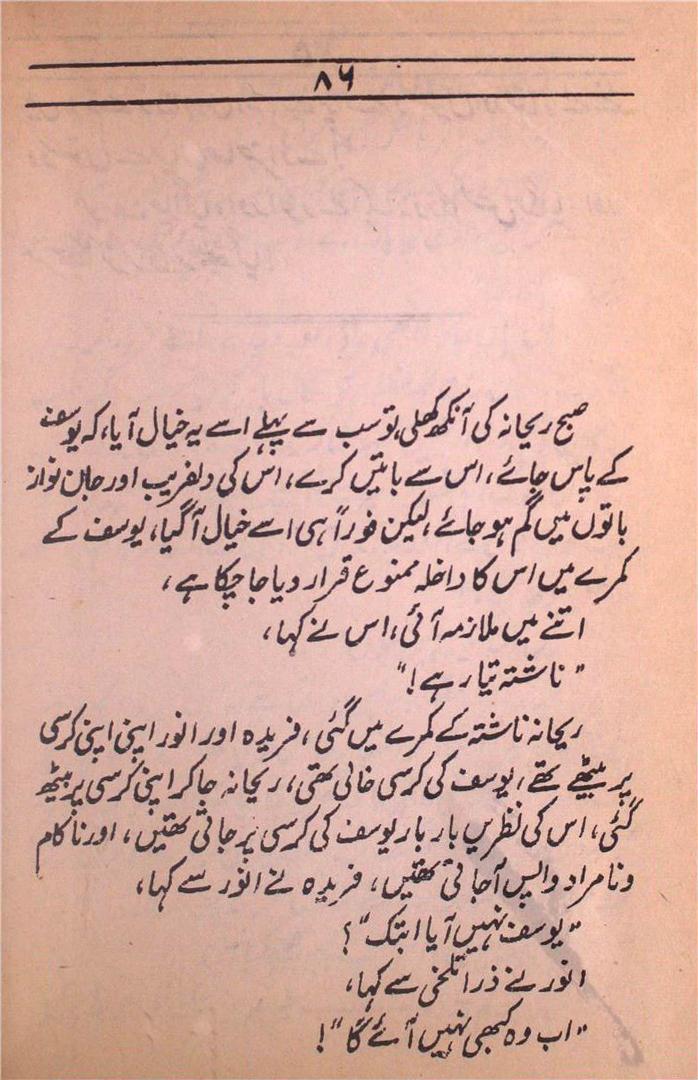 ۸۶
صبح ریحانہ کی آنکھ کھلی، تو سب سے پہلے اسے یہ خیال آیا، کہ یوسف
کے پاس جائے، اس سے باتیں کرے، اس کی دلفریب اور جان نواز
باتوں میں گم ہو جائے، لیکن فوراً ہی اسے خیال آگیا، یوسف کے
کمرے میں اس کا داخلہ ممنوع قرار دیا جا چکا ہے،
اتنے میں ملازمہ آئی، اس نے کہا،
"ناشتہ تیار ہے!"
ریحانہ ناشتہ کے کمرے میں گئی، فریدہ اور انور اپنی اپنی کرسی
پر بیٹھے تھے، یوسف کی کرسی خالی تھی، ریحانہ جا کر اپنی کرسی پر بیٹھ
گئی، اس کی نظریں بار بار یوسف کی کرسی پر جاتی تھیں، اور ناکام
و نامراد واپس آجاتی تھیں، فریدہ نے انور سے کہا،
"یوسف نہیں آیا ابتک"؟
انور نے ذرا تلخی سے کہا،
"اب وہ کبھی نہیں آئے گا"!